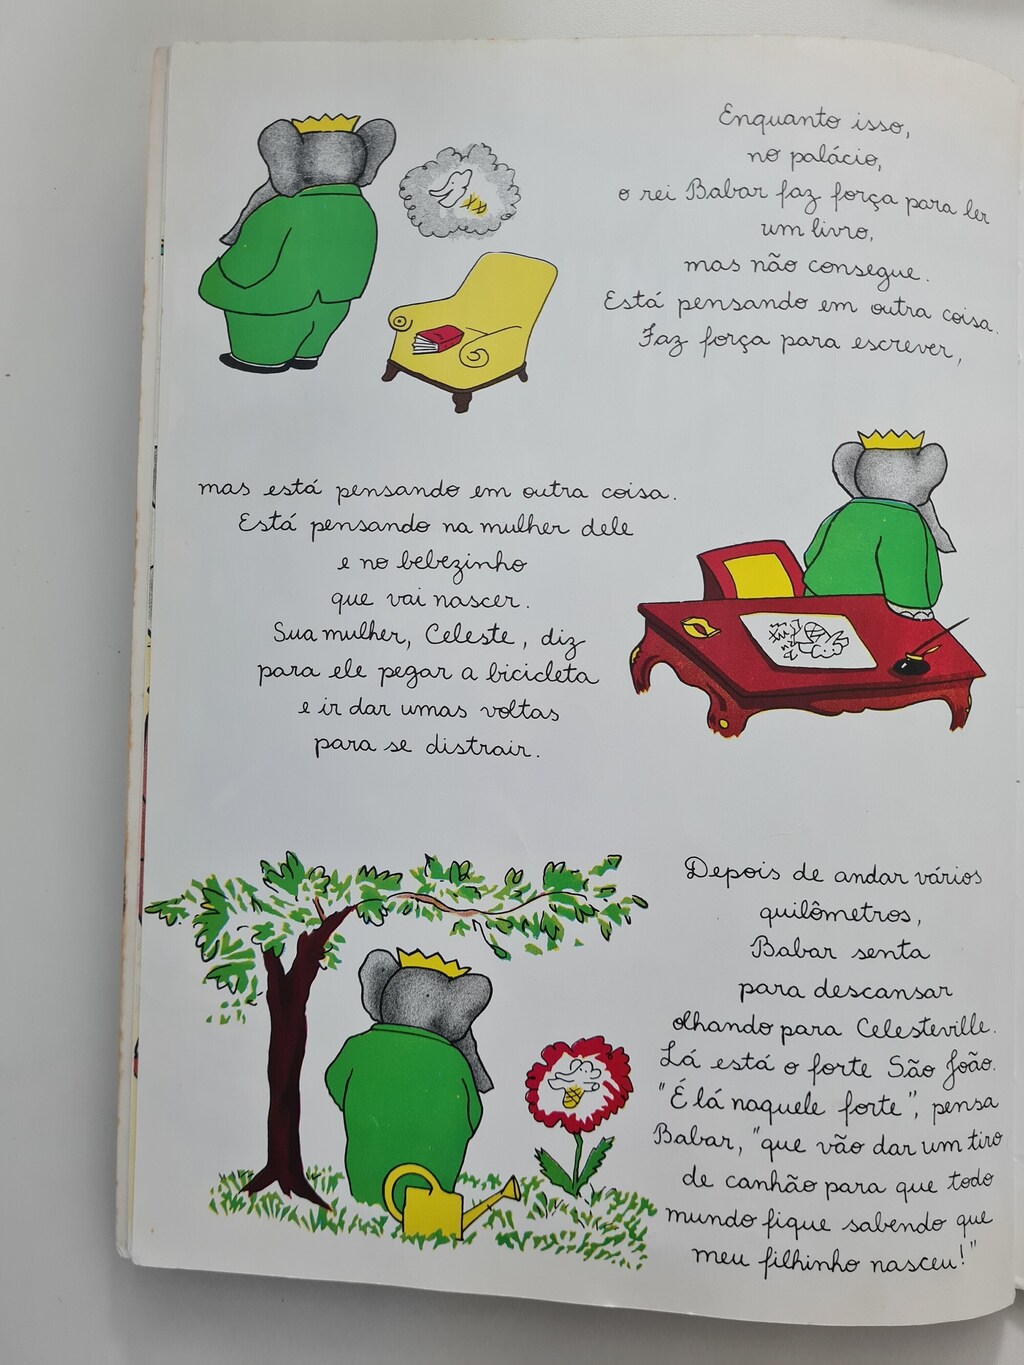 Enquanto isso,
no palácio,
o rei Babar faz força para ler
um livro,
mas não consegue.
Está pensando em outra coisa.
Faz força para escrever,
mas está pensando em outra coisa.
Está pensando na mulher dele
e no bebezinho
que vai nascer.
Sua mulher, Celeste, diz
para ele pegar a bicicleta
e ir dar umas voltas
para se distrair.
Depois de andar vários
quilômetros,
Babar senta
para descansar
olhando para Celesteville.
Lá está o forte São João.
"É lá naquele forte", pensa
Babar, "que vão dar um tiro
de canhão para que todo
mundo fique sabendo que
meu filhinho nasceu!"